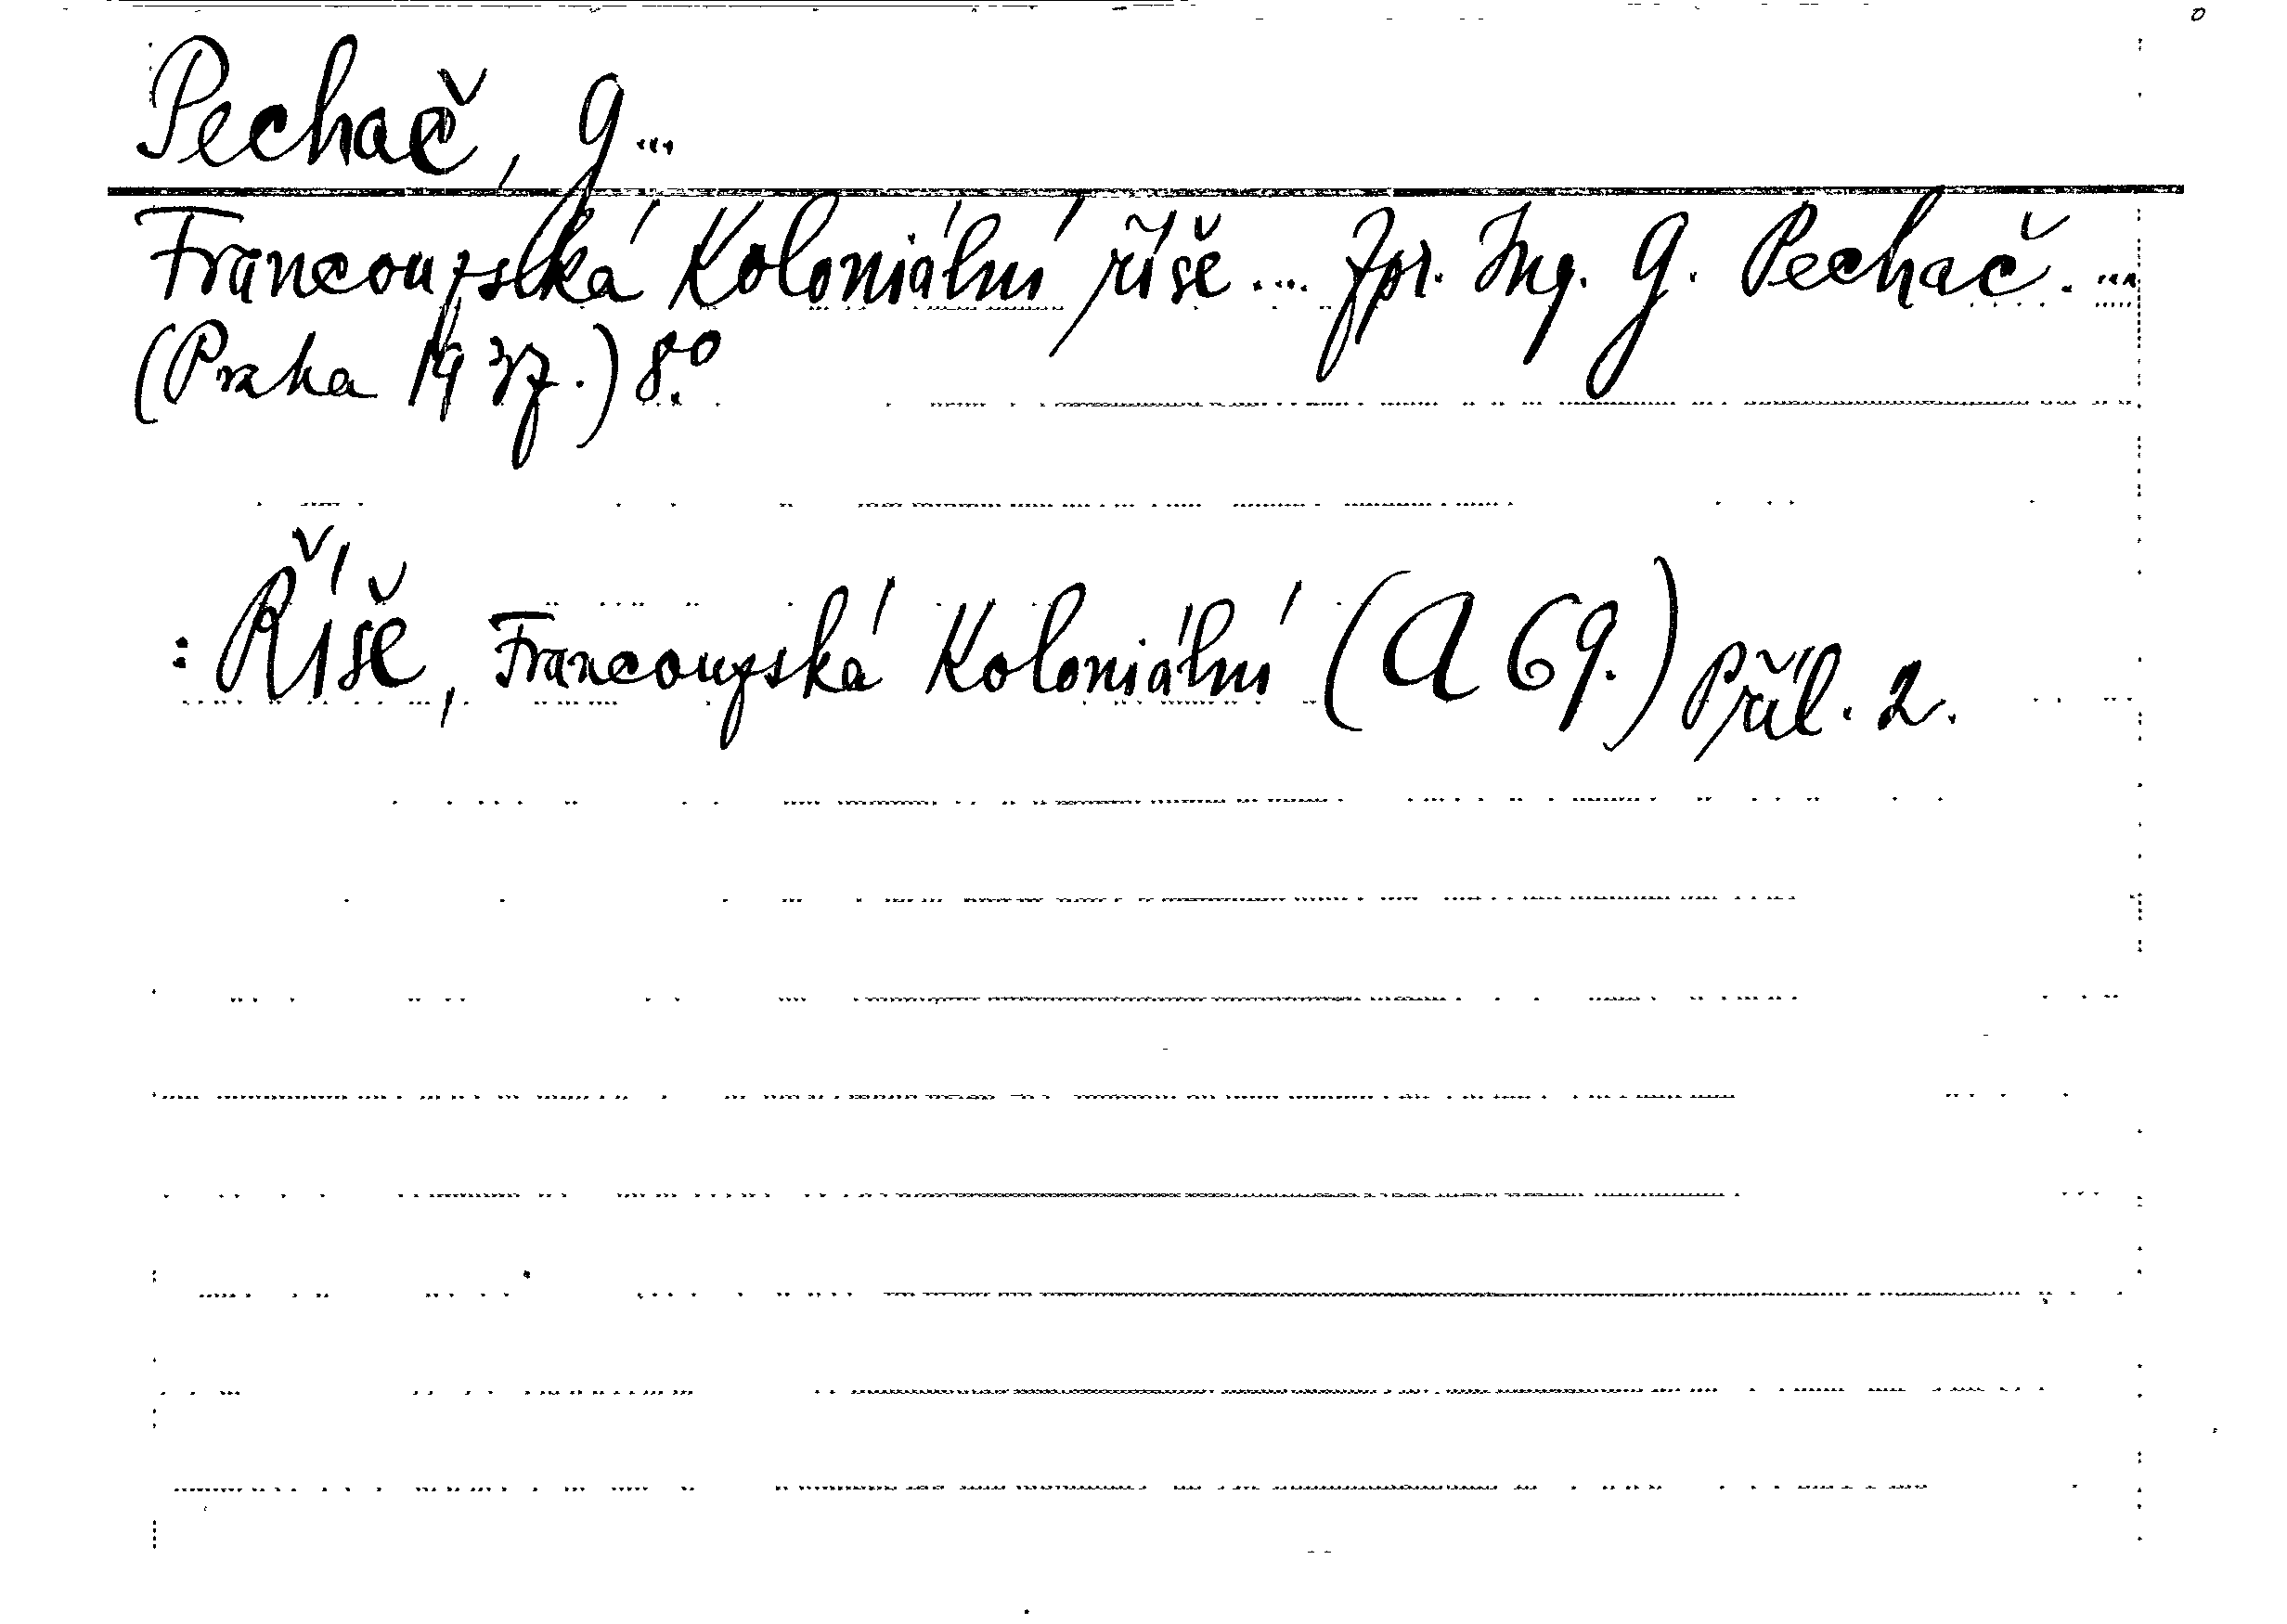 Pechač, G...
Francouzská Koloniální říše.... Zpr. Ing. G. Pechač. ...
(Praha 1937.) 8.°
: Říše, Francouzská Koloniální (A 69.) Příl. 2.